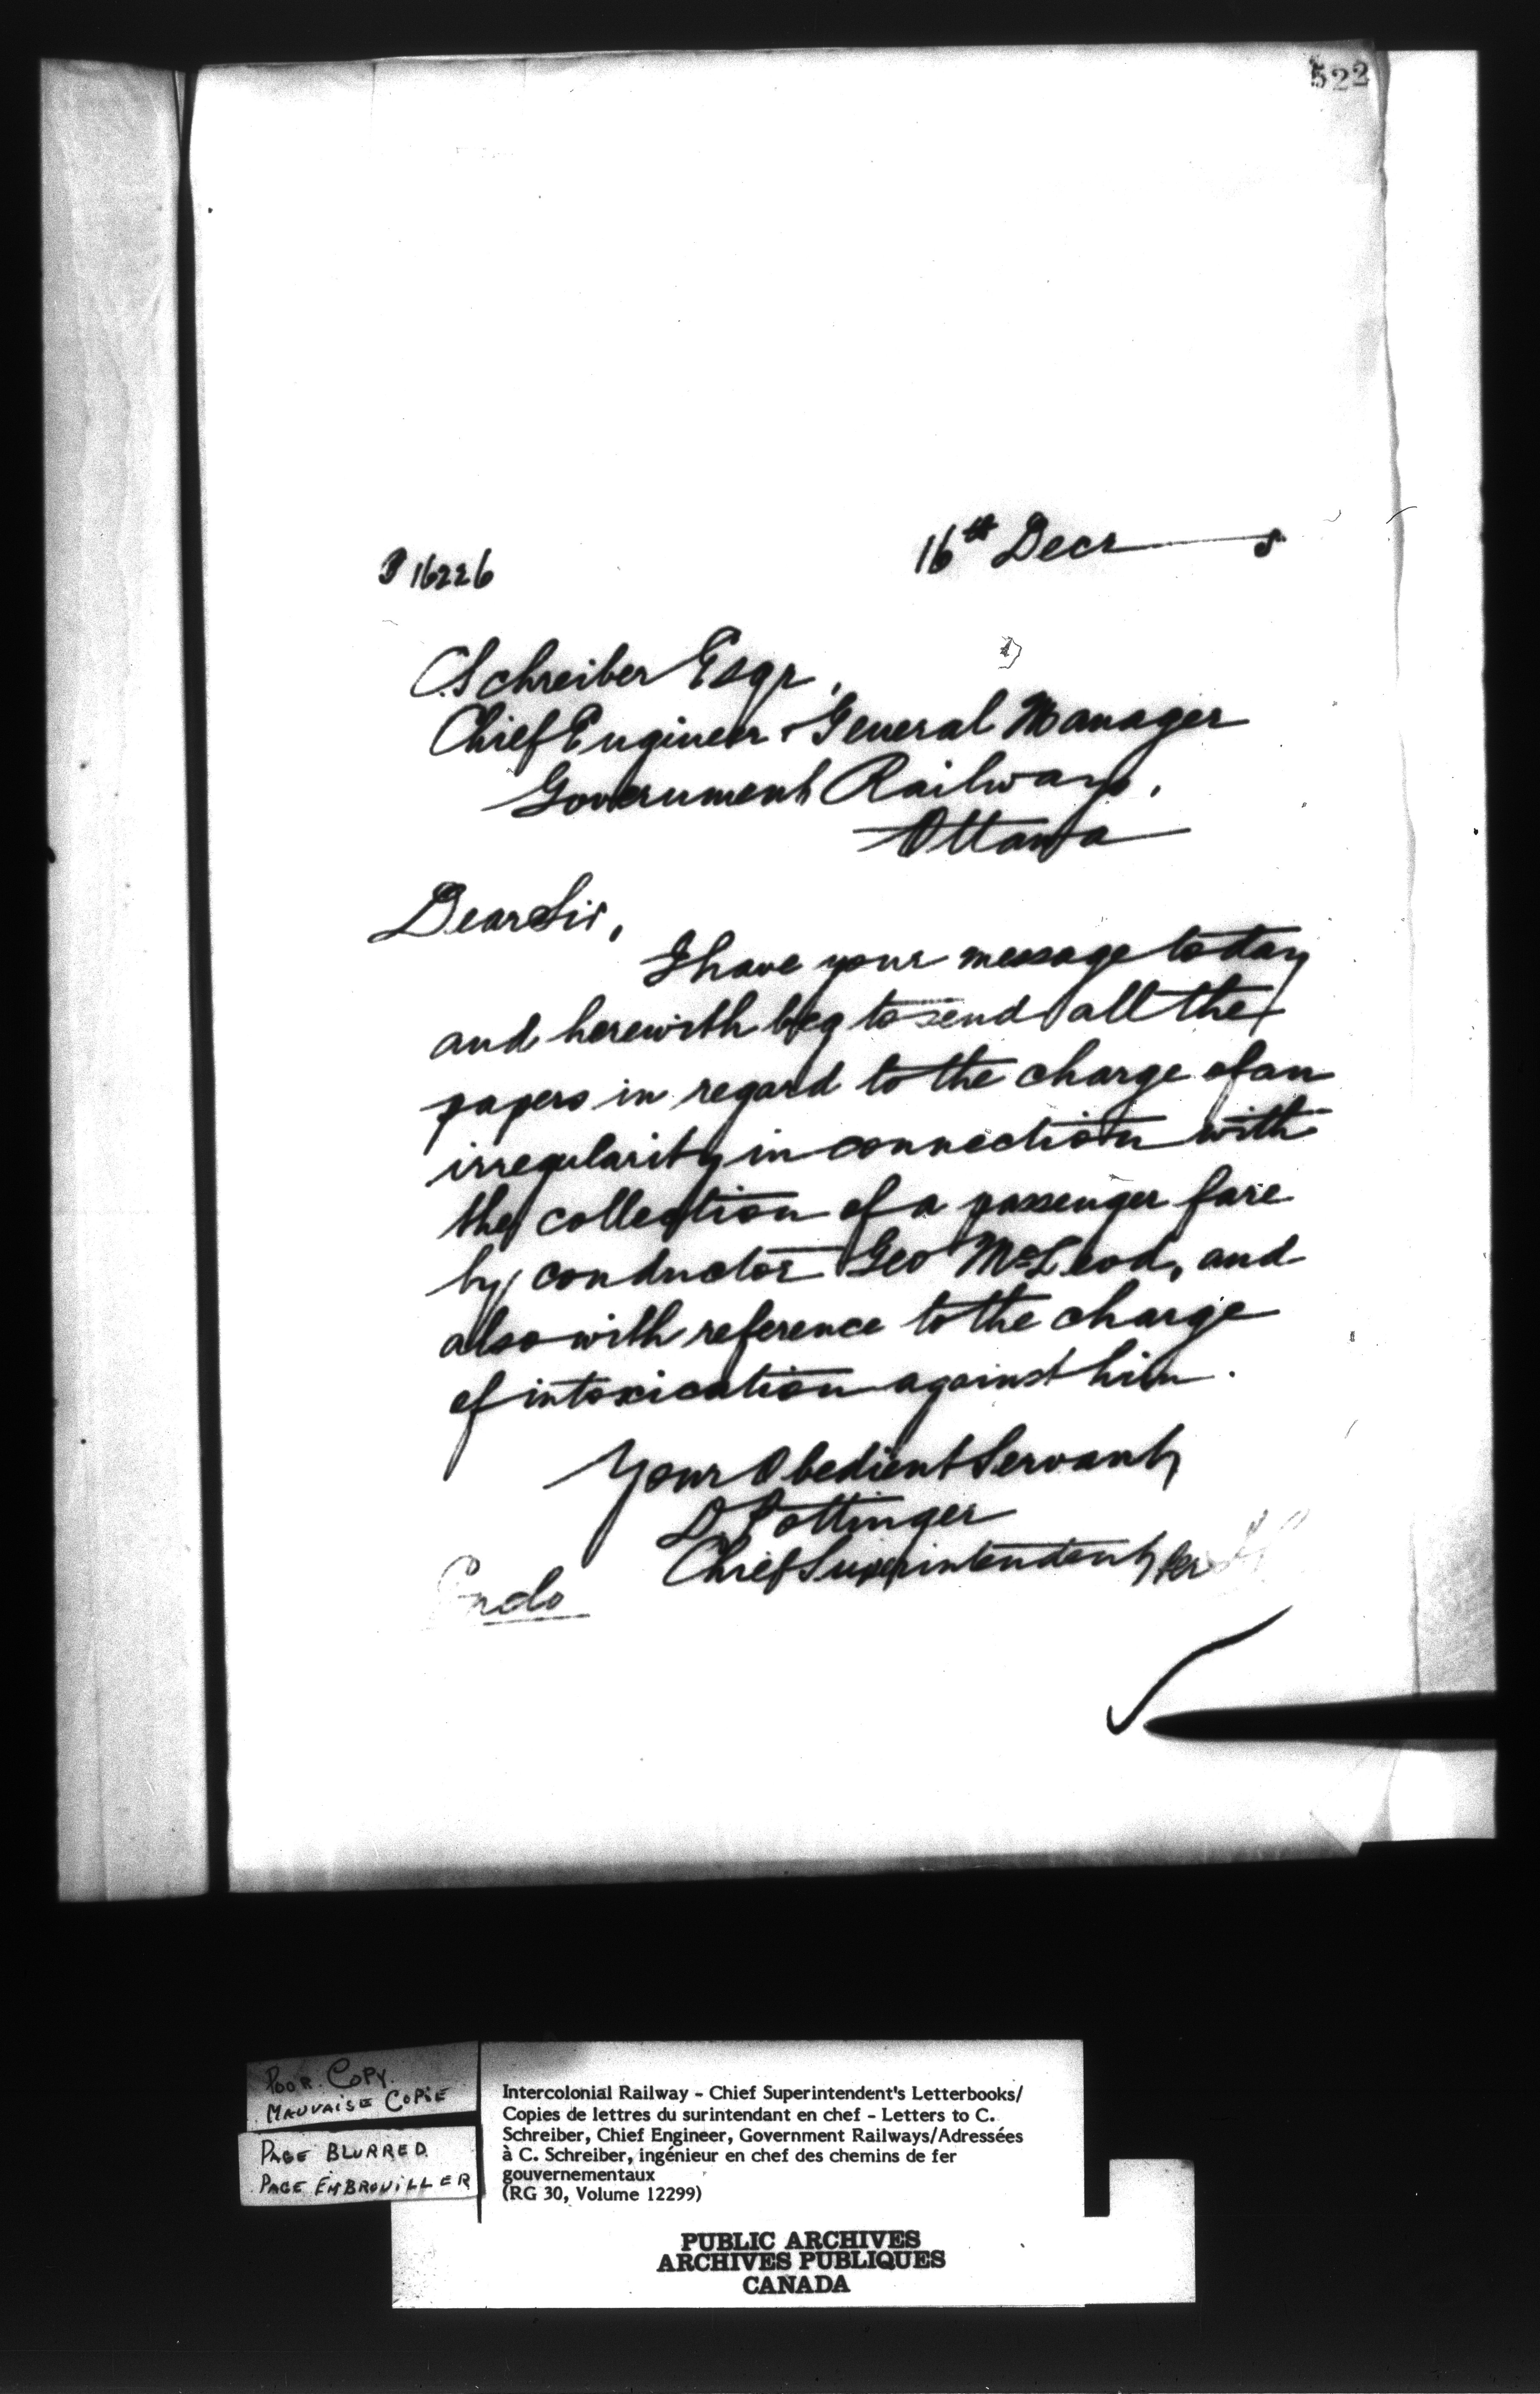 522
P 16226
16th Decr 5
C. Schreiber Esqr,
Chief Engineer & General Manager
Government Railways,
Ottawa
Dear Sir,
I have your message today
and herewith beg to send all the
papers in regard to the charge of an
irregularity in connection with
the collection of a passenger fare
by conductor Geo McLeod, and
also with reference to the charge
of intoxication against him.
Your Obedient Servant,
D. Pottinger
Chief Superintendent, per
Encls
POOR COPY.
MAUVAISE COPIE
PAGE BLURRED.
PAGE EMBROUILLER
Intercolonial Railway - Chief Superintendent's Letterbooks/
Copies de lettres du surintendant en chef - Letters to C.
Schreiber, Chief Engineer, Government Railways/Adressées
à C. Schreiber, ingénieur en chef des chemins de fer
gouvernementaux
(RG 30, Volume 12299)
PUBLIC ARCHIVES
ARCHIVES PUBLIQUES
CANADA